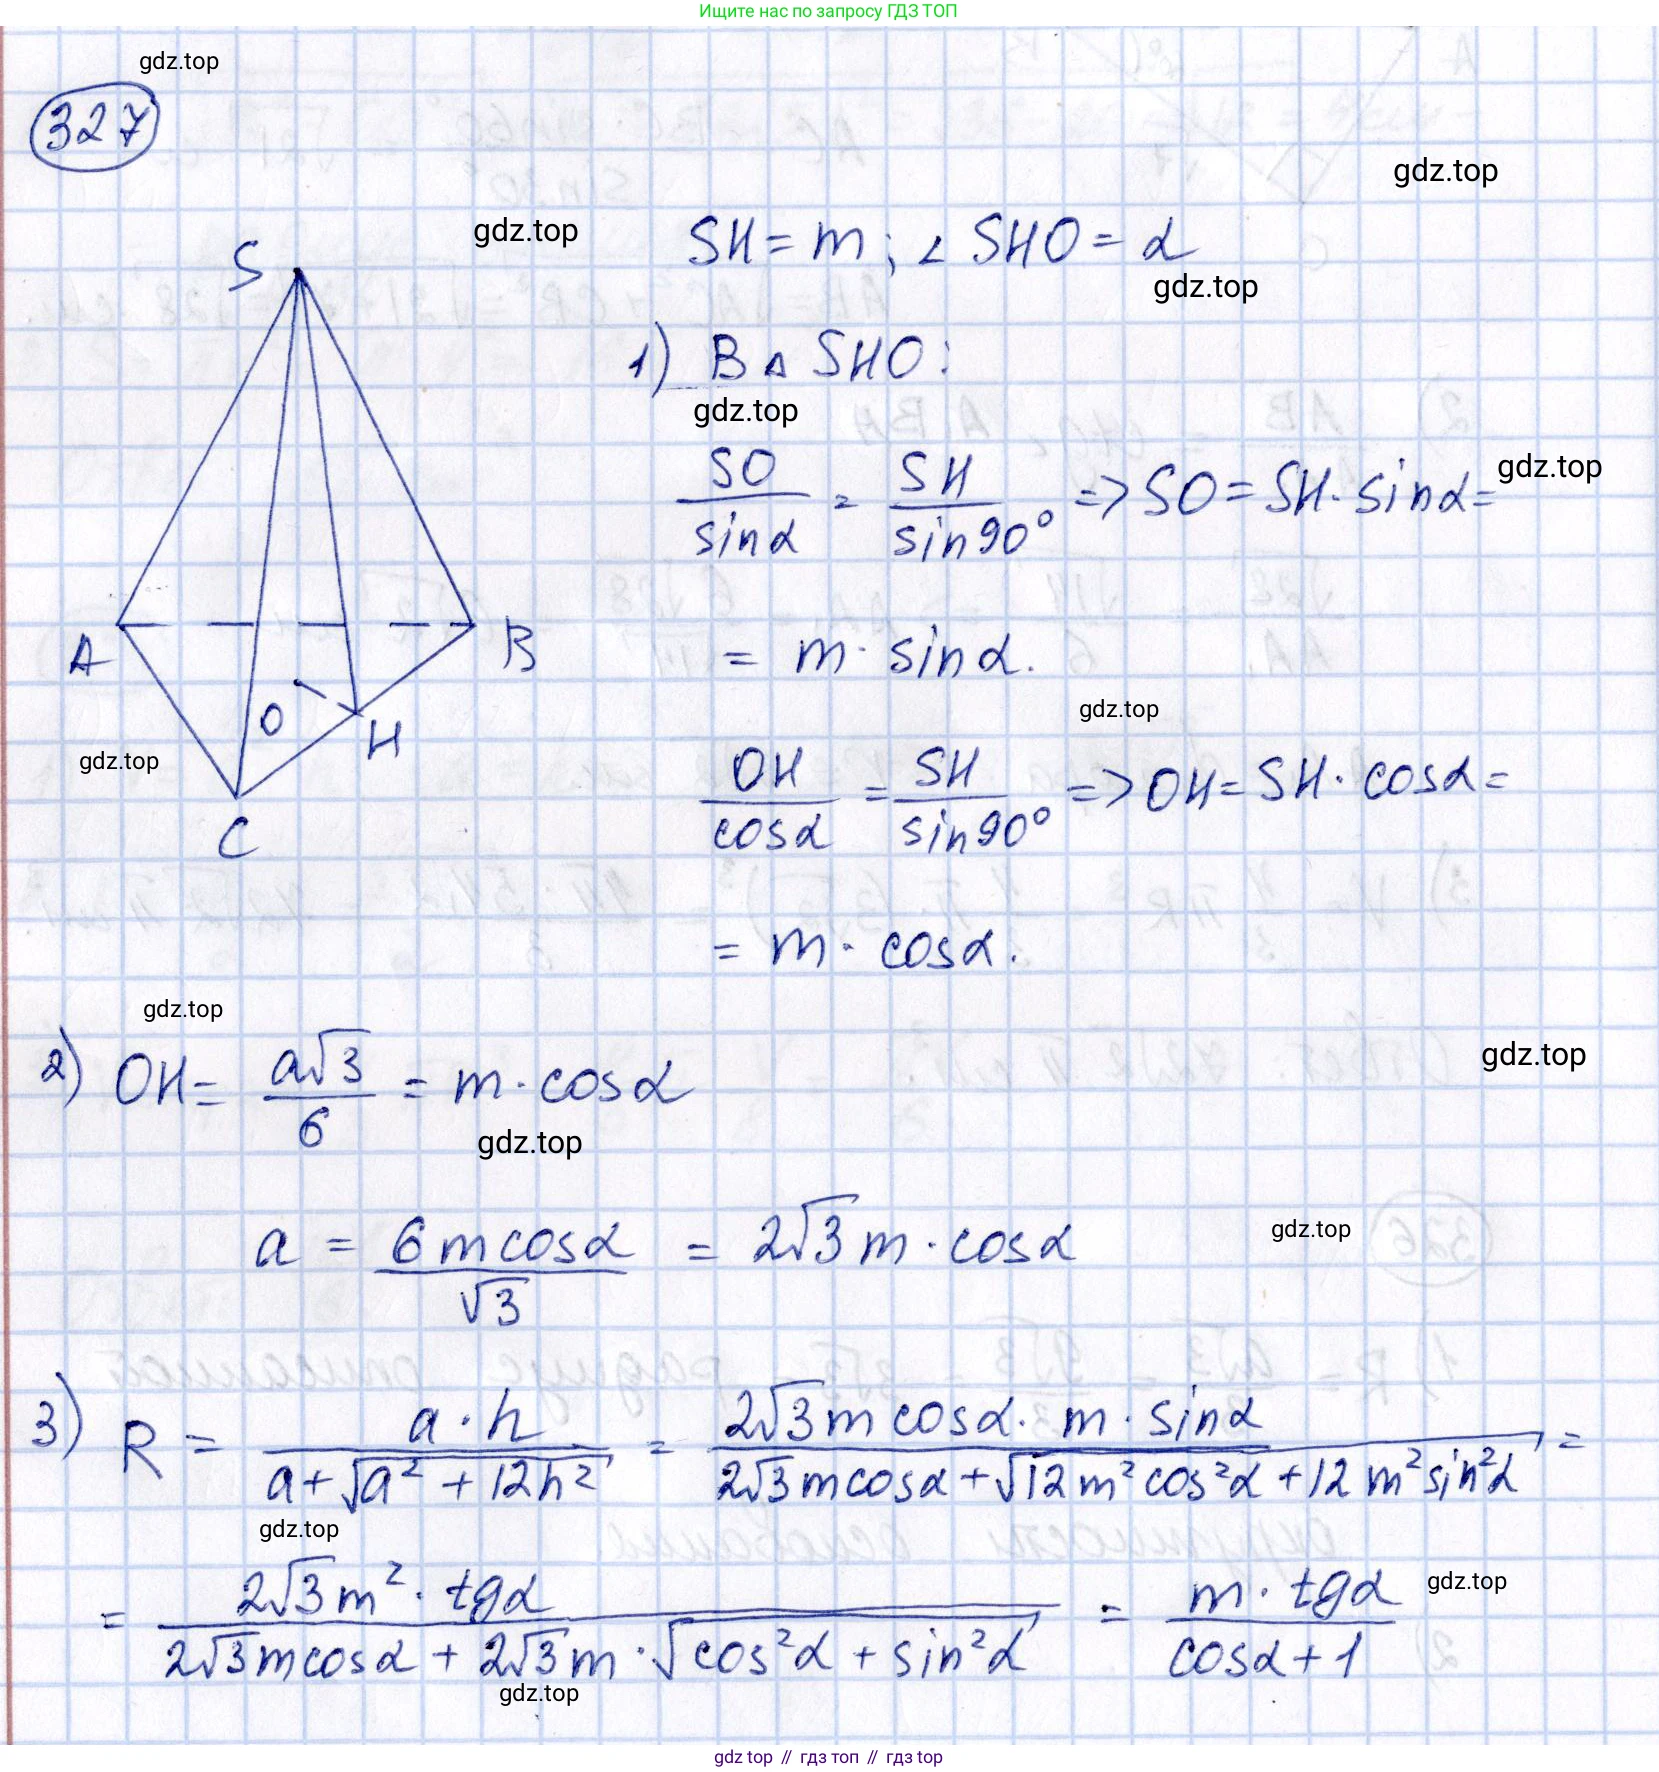 Ищите нас по запросу ГДЗ ТОП
gdz.top
327
gdz.top
gdz.top
SH = m ; ∠ SHO = α
S
gdz.top
1) В △ SHO:
gdz.top
SO/sinα = SH/sin90° => SO = SH · sinα =
gdz.top
= m · sinα.
A
B
O
H
gdz.top
gdz.top
C
OH/cosα = SH/sin90° => OH = SH · cosα =
= m · cosα.
gdz.top
2) OH = a√3/6 = m · cosα
gdz.top
gdz.top
a = 6mcosα/√3 = 2√3m · cosα
gdz.top
3) R = a · h/(a + √(a² + 12h²)) = 2√3mcosα · m · sinα/(2√3mcosα + √(12m²cos²α + 12m²sin²α)) =
gdz.top
= 2√3m² · tgα/(2√3mcosα + 2√3m · √(cos²α + sin²α)) = m · tgα/(cosα + 1)
gdz.top
gdz.top
gdz top // гдз топ // гдз top